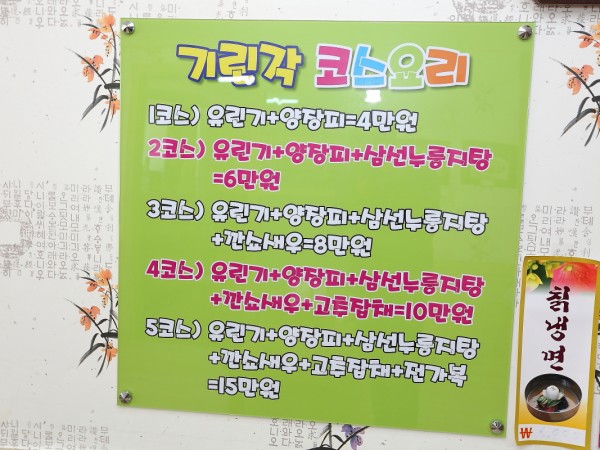 기린각 코스요리
1코스) 유린기+양장피=4만원
2코스) 유린기+양장피+삼선누룽지탕
=6만원
3코스) 유린기+양장피+삼선누룽지탕
+깐쇼새우=8만원
4코스) 유린기+양장피+삼선누룽지탕
+깐쇼새우+고추잡채=10만원
5코스) 유린기+양장피+삼선누룽지탕
+깐쇼새우+고추잡채+전가복
=15만원
칡냉면
₩